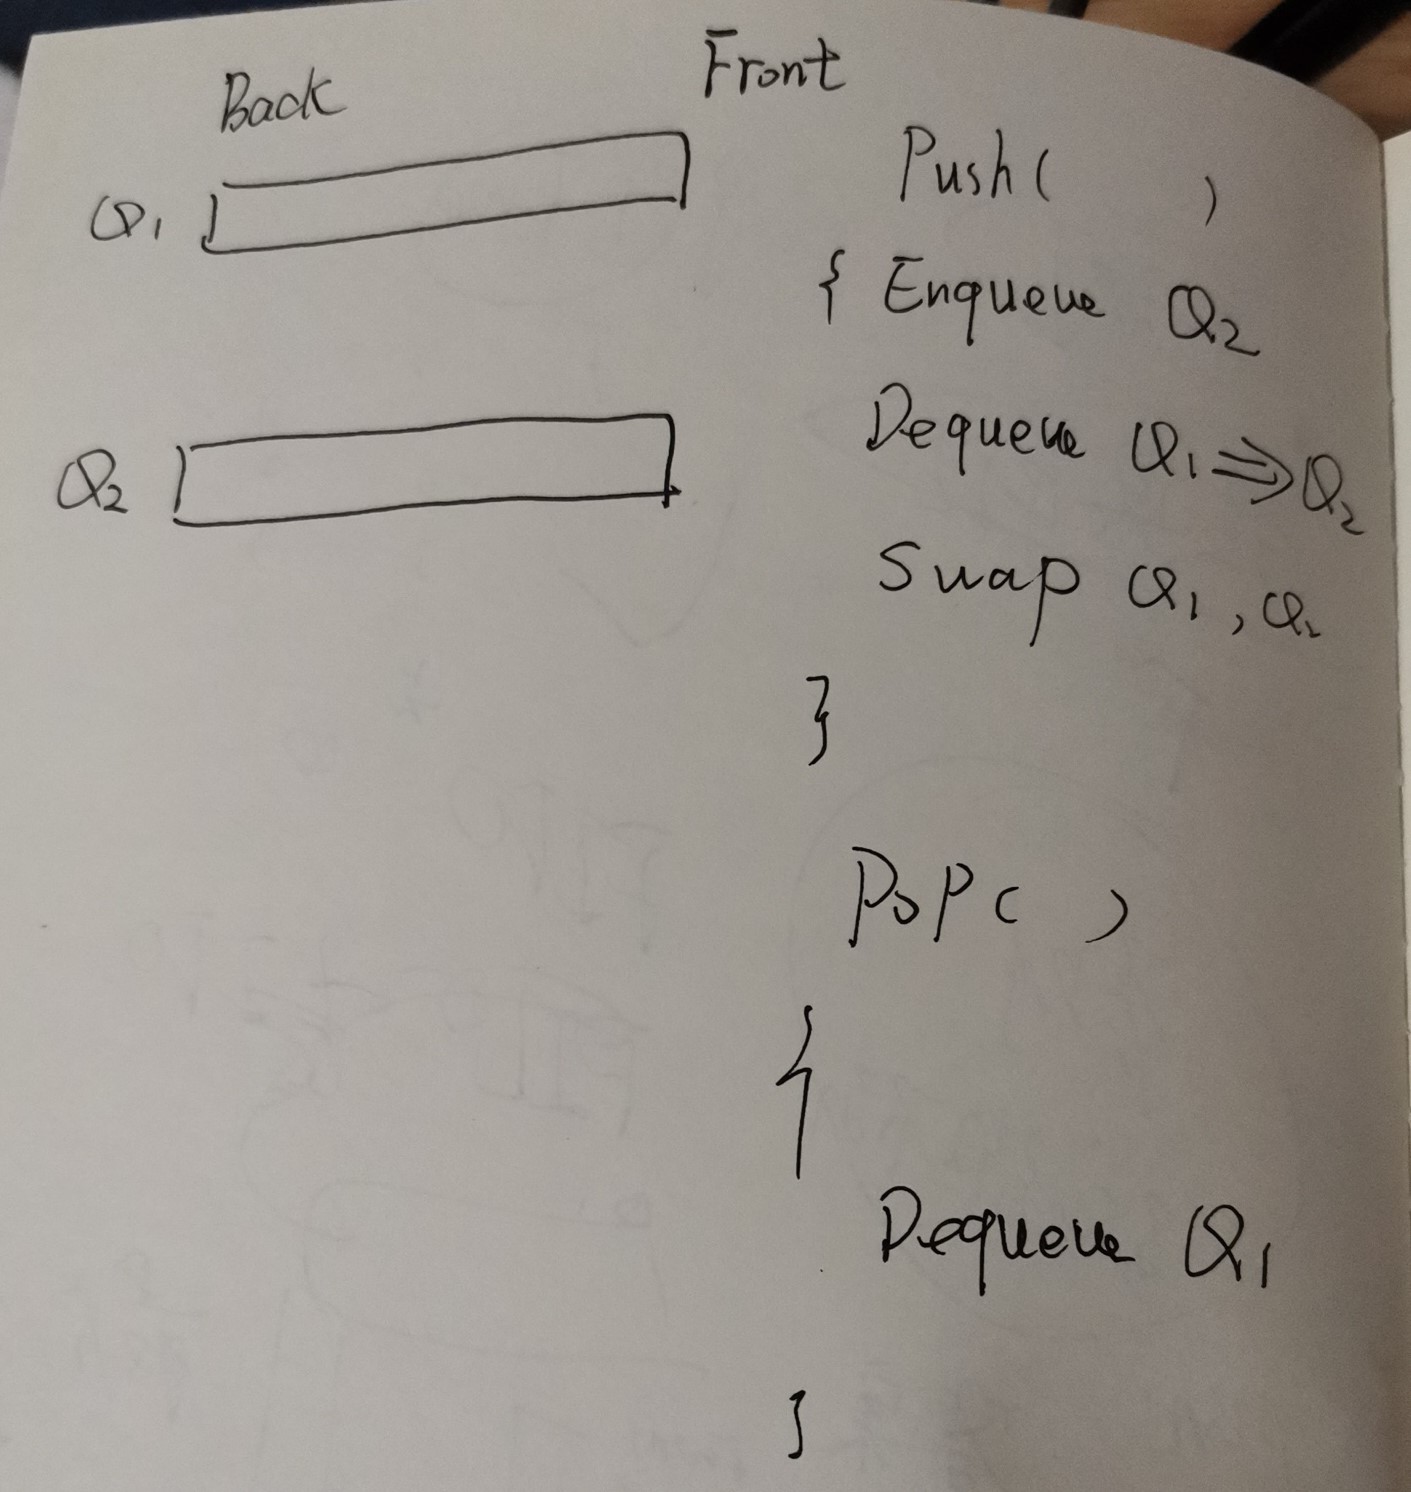 Back Front
Q1
Push( )
{ Enqueue Q2
Dequeue Q1 ⇒ Q2
Q2
Swap Q1, Q2
}
Pop( )
{
Dequeue Q1
}